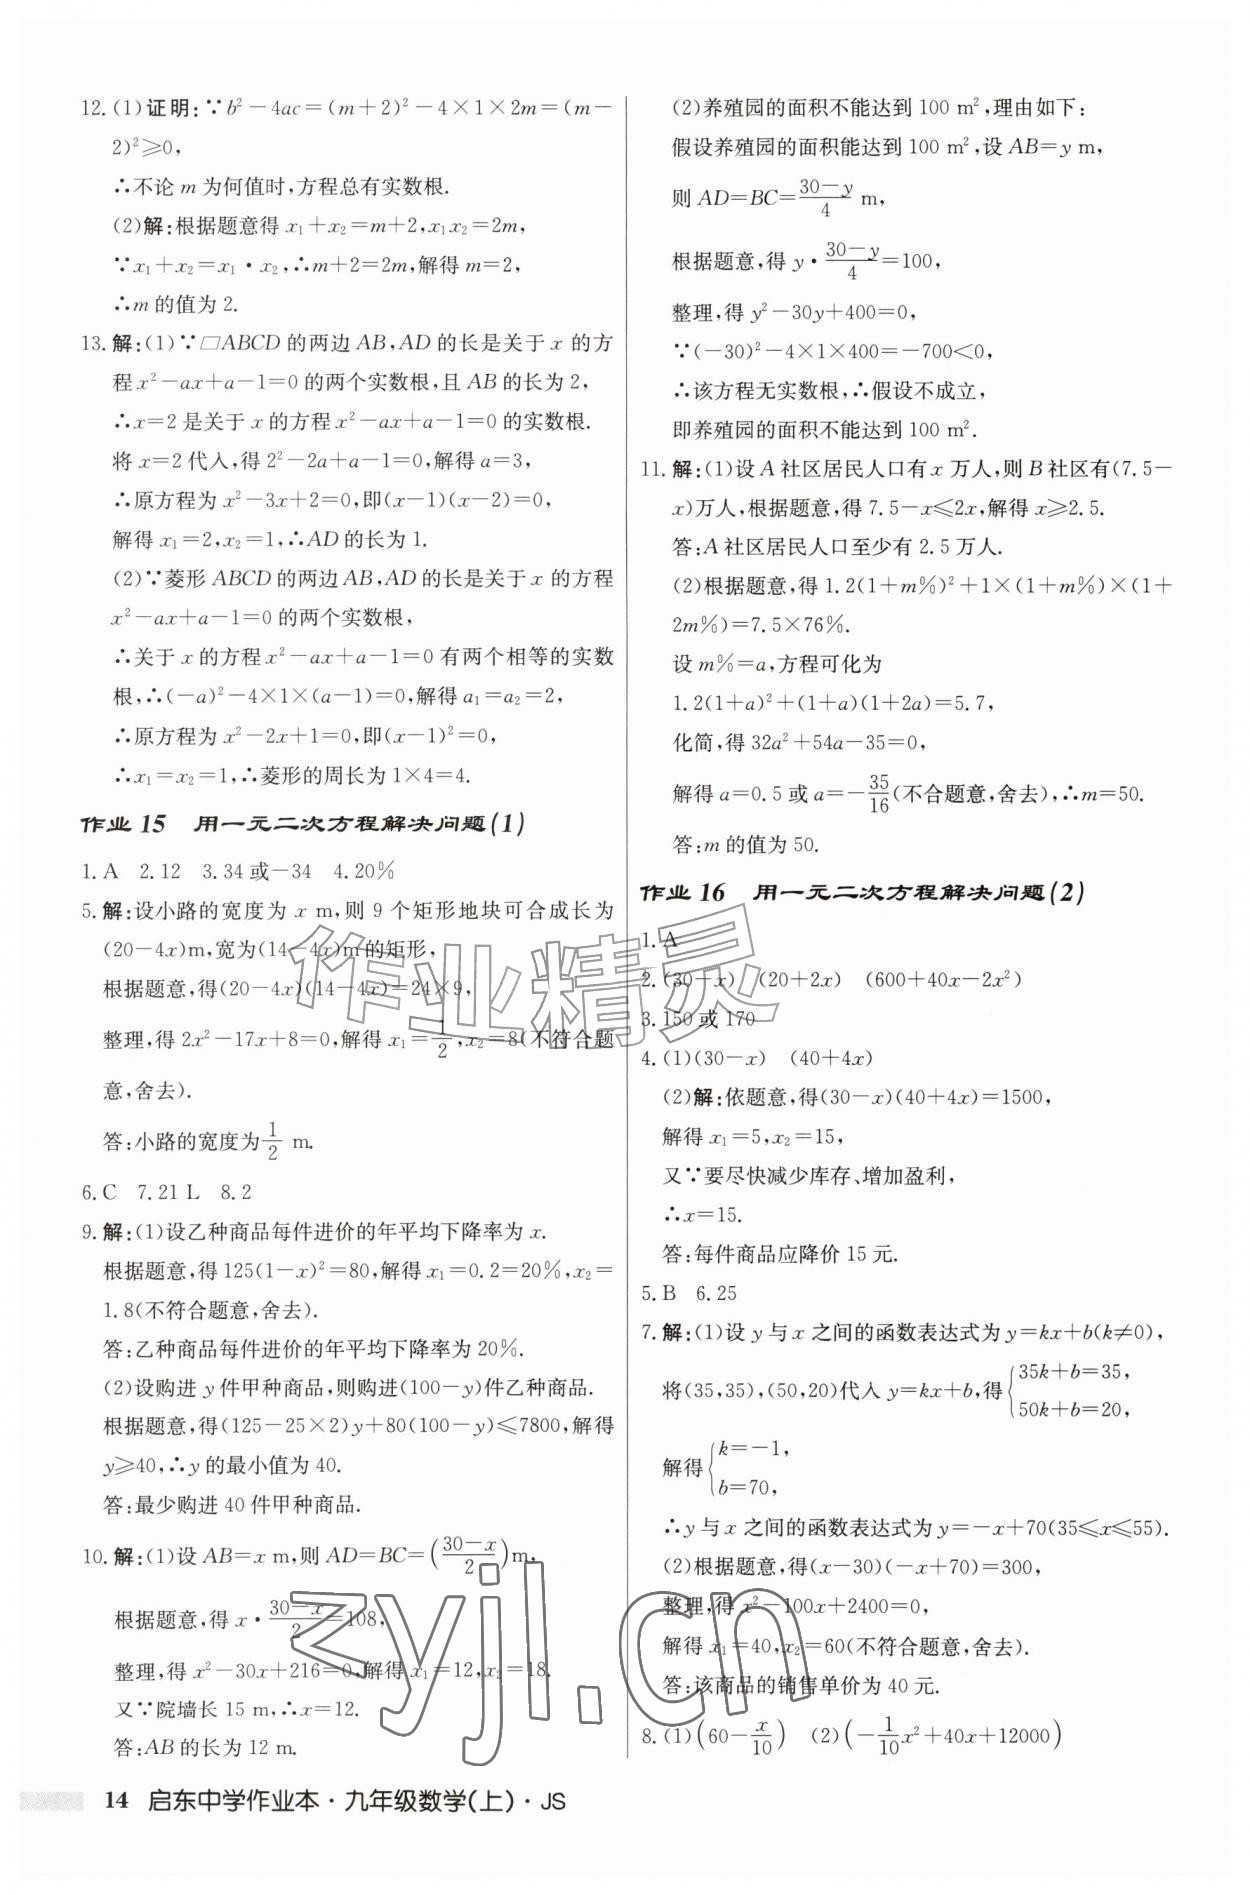 12. (1)证明:∵b²-4ac=(m+2)²-4×1×2m=(m-
2)²≥0,
∴不论 m 为何值时,方程总有实数根.
(2)解:根据题意得 x₁+x₂=m+2,x₁x₂=2m,
∵x₁+x₂=x₁·x₂,∴m+2=2m,解得 m=2,
∴m 的值为 2.
13. 解:(1)∵□ABCD 的两边 AB,AD 的长是关于 x 的方
程 x²-ax+a-1=0 的两个实数根,且 AB 的长为 2,
∴x=2 是关于 x 的方程 x²-ax+a-1=0 的实数根.
将 x=2 代入,得 2²-2a+a-1=0,解得 a=3,
∴原方程为 x²-3x+2=0,即(x-1)(x-2)=0,
解得 x₁=2,x₂=1,∴AD 的长为 1.
(2)∵菱形 ABCD 的两边 AB,AD 的长是关于 x 的方程
x²-ax+a-1=0 的两个实数根,
∴关于 x 的方程 x²-ax+a-1=0 有两个相等的实数
根,∴(-a)²-4×1×(a-1)=0,解得 a₁=a₂=2,
∴原方程为 x²-2x+1=0,即(x-1)²=0,
∴x₁=x₂=1,∴菱形的周长为 1×4=4.
作业 15 用一元二次方程解决问题(1)
1. A 2. 12 3. 34 或-34 4. 20%
5. 解:设小路的宽度为 x m,则 9 个矩形地块可合成长为
(20-4x)m,宽为(14-4x)m 的矩形,
根据题意,得(20-4x)(14-4x)=24×9,
整理,得 2x²-17x+8=0,解得 x₁=1/2,x₂=8(不符合题
意,舍去).
答:小路的宽度为1/2 m.
6. C 7. 21 L 8. 2
9. 解:(1)设乙种商品每件进价的年平均下降率为 x.
根据题意,得 125(1-x)²=80,解得 x₁=0.2=20%,x₂=
1.8(不符合题意,舍去).
答:乙种商品每件进价的年平均下降率为 20%.
(2)设购进 y 件甲种商品,则购进(100-y)件乙种商品.
根据题意,得(125-25×2)y+80(100-y)≤7800,解得
y≥40,∴y 的最小值为 40.
答:最少购进 40 件甲种商品.
10. 解:(1)设 AB=x m,则 AD=BC=((30-x)/2)m,
根据题意,得 x·(30-x)/2=108,
整理,得 x²-30x+216=0,解得 x₁=12,x₂=18.
又∵院墙长 15 m,∴x=12.
答:AB 的长为 12 m.
(2)养殖园的面积不能达到 100 m²,理由如下:
假设养殖园的面积能达到 100 m²,设 AB=y m,
则 AD=BC=(30-y)/4 m,
根据题意,得 y·(30-y)/4=100,
整理,得 y²-30y+400=0,
∵(-30)²-4×1×400=-700<0,
∴该方程无实数根,∴假设不成立,
即养殖园的面积不能达到 100 m².
11. 解:(1)设 A 社区居民人口有 x 万人,则 B 社区有(7.5-
x)万人,根据题意,得 7.5-x≤2x,解得 x≥2.5.
答:A 社区居民人口至少有 2.5 万人.
(2)根据题意,得 1.2(1+m%)²+1×(1+m%)×(1+
2m%)=7.5×76%.
设 m%=a,方程可化为
1.2(1+a)²+(1+a)(1+2a)=5.7,
化简,得 32a²+54a-35=0,
解得 a=0.5 或 a=-35/16(不合题意,舍去),∴m=50.
答:m 的值为 50.
作业 16 用一元二次方程解决问题(2)
1. A
2. (30+x) (20+2x) (600+40x-2x²)
3. 150 或 170
4. (1)(30-x) (40+4x)
(2)解:依题意,得(30-x)(40+4x)=1500,
解得 x₁=5,x₂=15,
又∵要尽快减少库存、增加盈利,
∴x=15.
答:每件商品应降价 15 元.
5. B 6. 25
7. 解:(1)设 y 与 x 之间的函数表达式为 y=kx+b(k≠0),
将(35,35),(50,20)代入 y=kx+b,得{35k+b=35, 50k+b=20,
解得{k=-1, b=70,
∴y 与 x 之间的函数表达式为 y=-x+70(35≤x≤55).
(2)根据题意,得(x-30)(-x+70)=300,
整理,得 x²-100x+2400=0,
解得 x₁=40,x₂=60(不符合题意,舍去).
答:该商品的销售单价为 40 元.
8. (1)(60-x/10) (2)(-1/10x²+40x+12000)
作业精灵
zyjl.cn
14 启东中学作业本·九年级数学(上)·JS